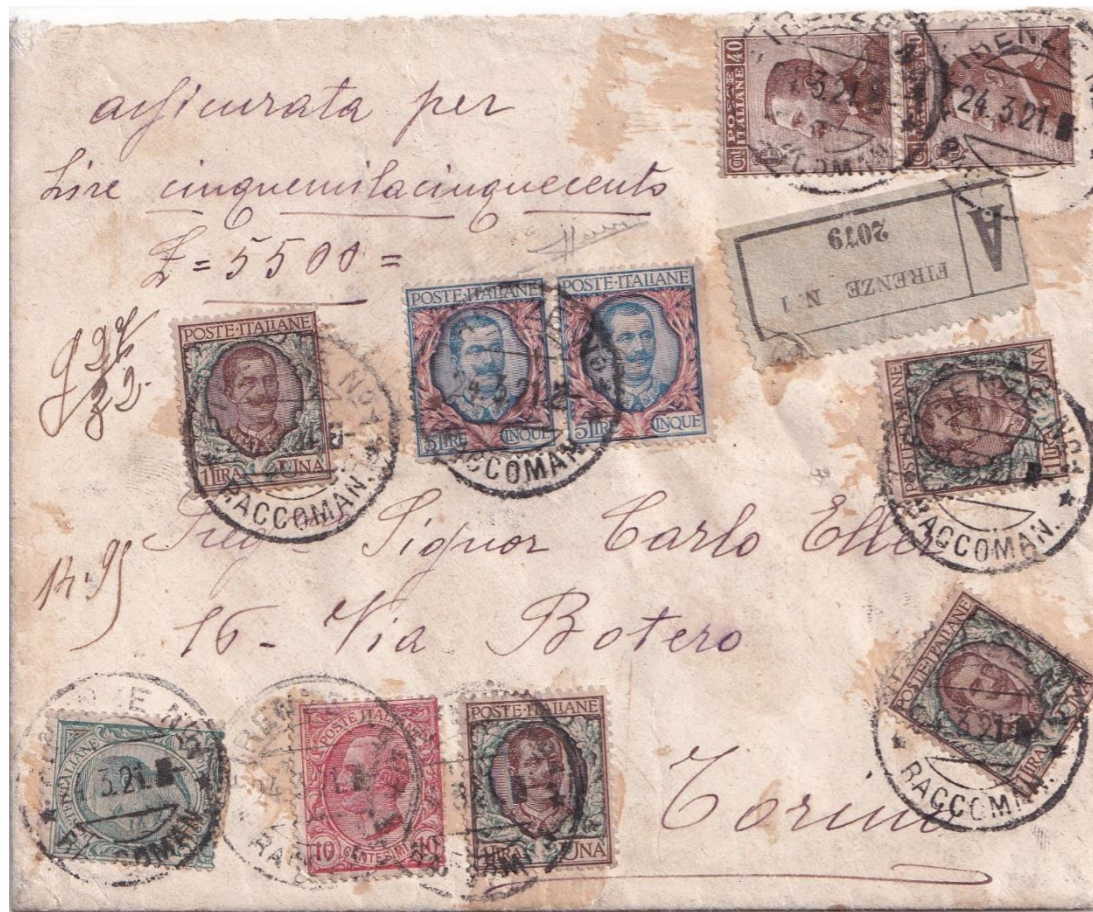 assicurata per
Lire cinquemilacinquecento
£ = 5500 =
POSTE ITALIANE Cent 40
POSTE ITALIANE Cent 40
FIRENZE 24.3.21 RACCOMAN.
A
FIRENZE N. 1
2079
POSTE·ITALIANE
1 LIRA UNA
RACCOMAN.
POSTE·ITALIANE
5 LIRE CINQUE
POSTE·ITALIANE
5 LIRE CINQUE
24.3.21
RACCOMAN.
POSTE·ITALIANE
1 LIRA UNA
RACCOMAN.
Preg. Signor Carlo Eller
14.95
16 - Via Botero
POSTE·ITALIANE
1 LIRA UNA
3.21
RACCOMAN.
POSTE ITALIANE
3.21
POSTE ITALIANE
10 CENTESIMI 10
POSTE·ITALIANE
1 LIRA UNA
Torino